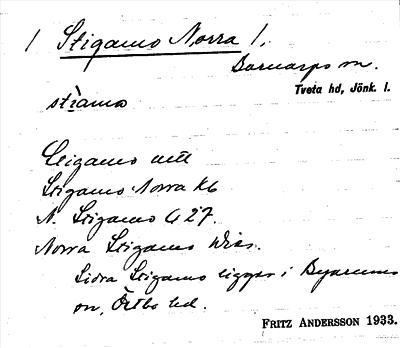 / Stigamo Norra /.
Barnarps sn.
Tveta hd, Jönk. l.
stìamo
Stigamo utt
Stigamo Norra kb
N. Stigamo G 27.
Norra Stigamo Wiss.
Södra Stigamo ligger i Byarums
sn, Östbo hd.
FRITZ ANDERSSON 1933.